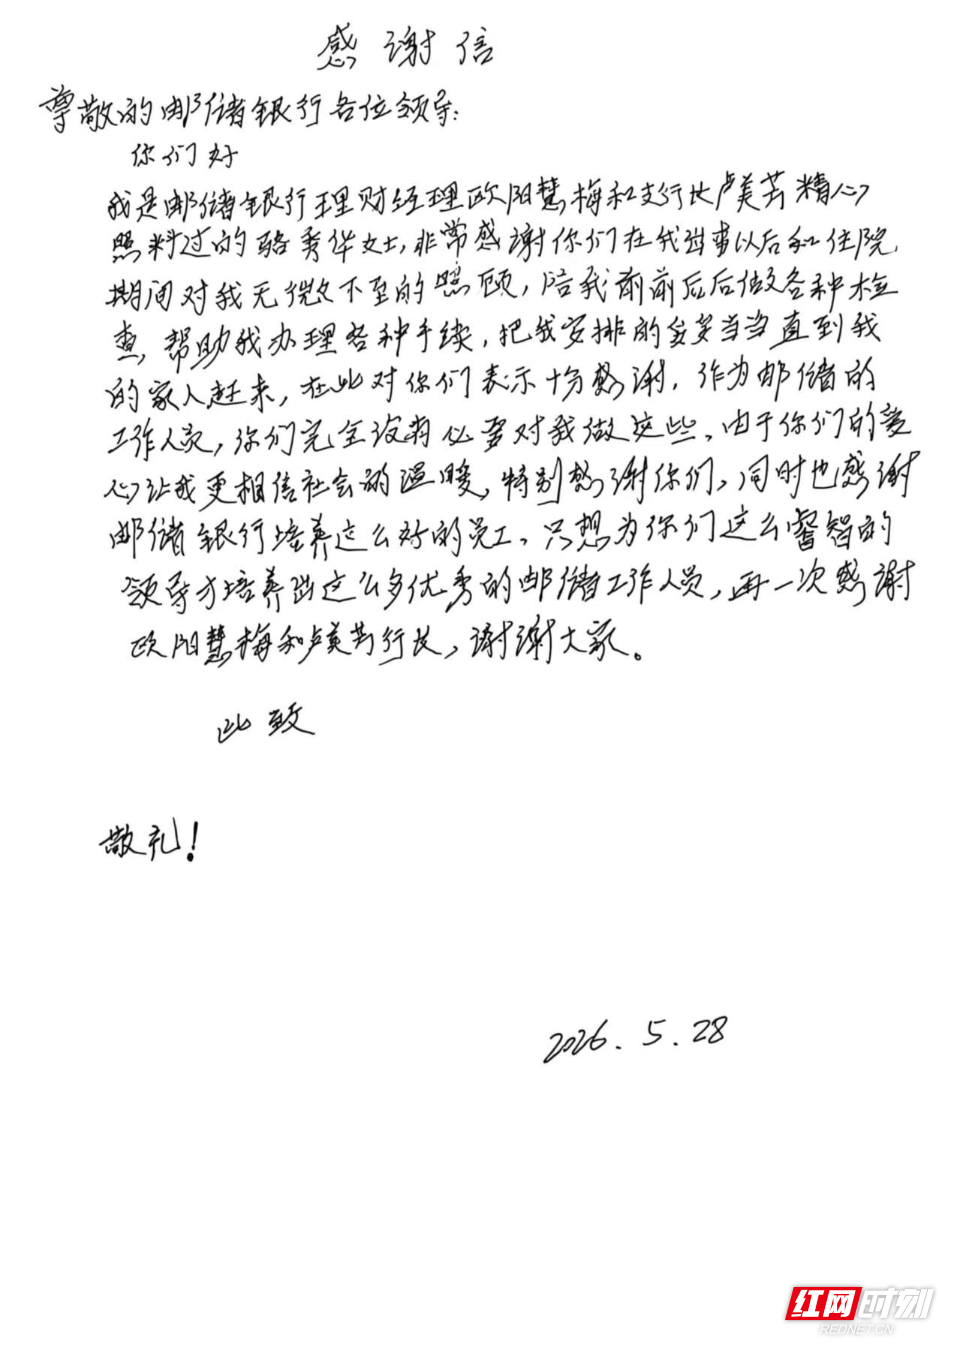 感谢信
尊敬的邮储银行各位领导:
你们好
我是邮储银行理财经理欧阳慧梅和支行长卢美芳精心
照料过的骆秀华女士,非常感谢你们在我出事以后和住院
期间对我无微不至的照顾,陪我前前后后做各种检
查,帮助我办理各种手续,把我安排的妥妥当当直到我
的家人赶来,在此对你们表示十分感谢.作为邮储的
工作人员,你们完全没有必要对我做这些、由于你们的爱
心让我更相信社会的温暖,特别感谢你们,同时也感谢
邮储银行培养这么好的员工、只想为你们这么睿智的
领导才培养出这么多优秀的邮储工作人员,再一次感谢
欧阳慧梅和卢美芳行长,谢谢大家。
此致
敬礼!
2026.5.28
红网时刻
REDNET.CN